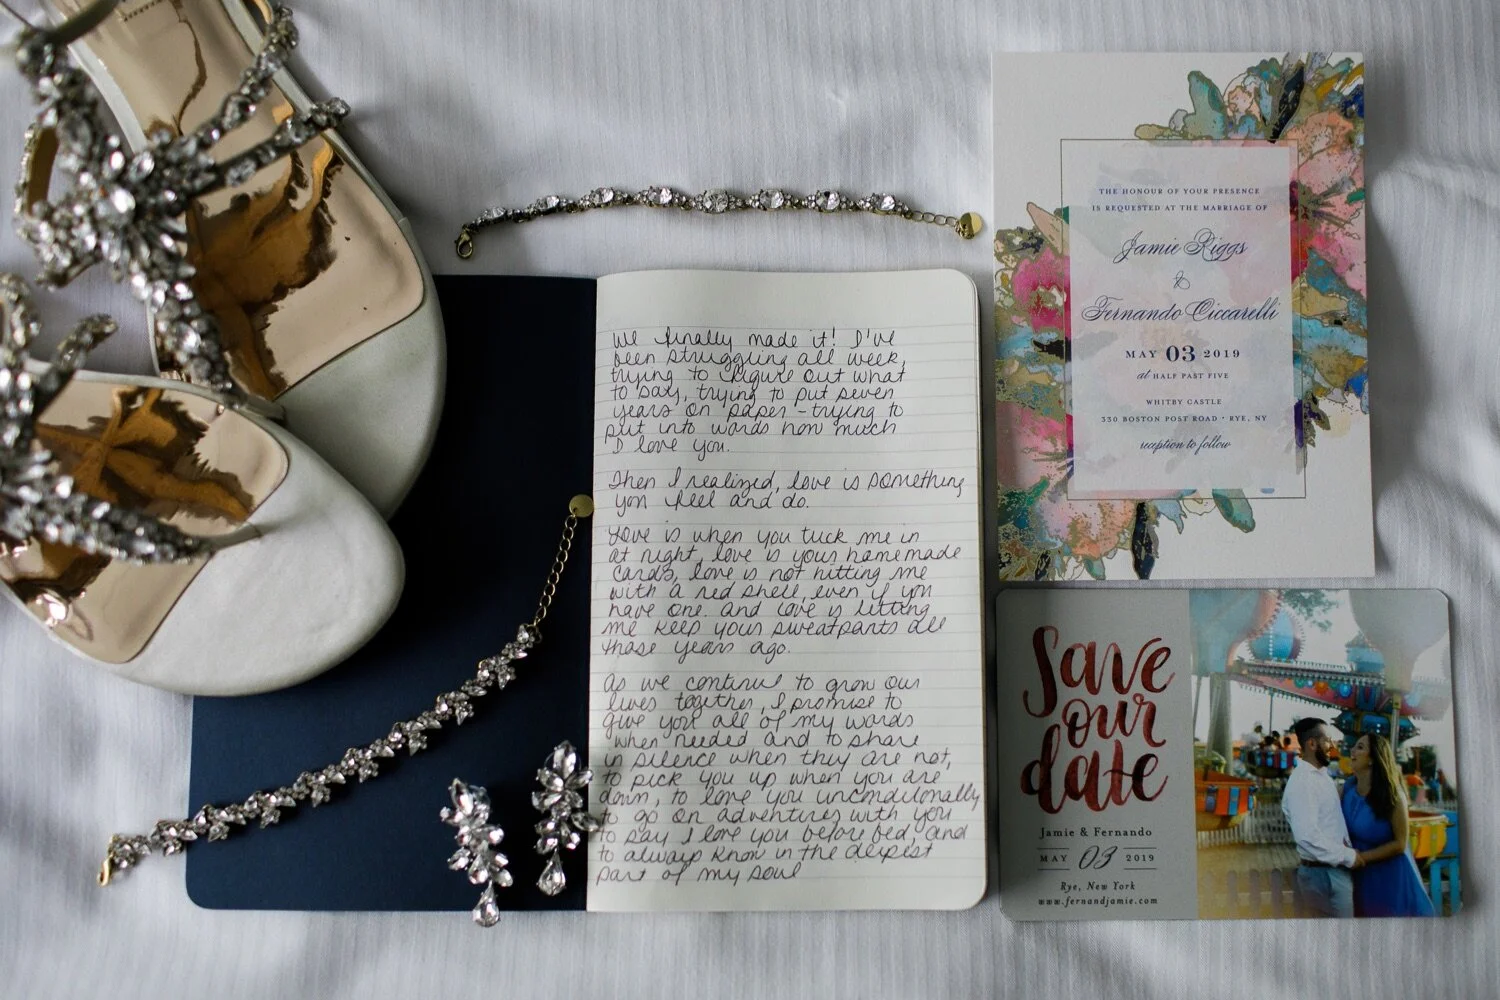 We finally made it! I've
been struggling all week,
trying to figure out what
to say, trying to put seven
years on paper - trying to
put into words how much
I love you.
Then I realized, love is something
you feel and do.
Love is when you tuck me in
at night, love is your homemade
cards, love is not hitting me
with a red shell, even if you
have one. and love is letting
me keep your sweatpants all
those years ago.
As we continue to grow our
lives together, I promise to
give you all of my words
when needed and to share
in silence when they are not,
to pick you up when you are
down, to love you unconditionally
to go on adventures with you
to say I love you before bed, and
to always know in the deepest
part of my soul
THE HONOUR OF YOUR PRESENCE
IS REQUESTED AT THE MARRIAGE OF
Jamie Riggs
&
Fernando Ciccarelli
MAY 03 2019
at HALF PAST FIVE
WHITBY CASTLE
330 BOSTON POST ROAD • RYE, NY
reception to follow
Save
our
date
Jamie & Fernando
MAY 03 2019
Rye, New York
www.fernandjamie.com